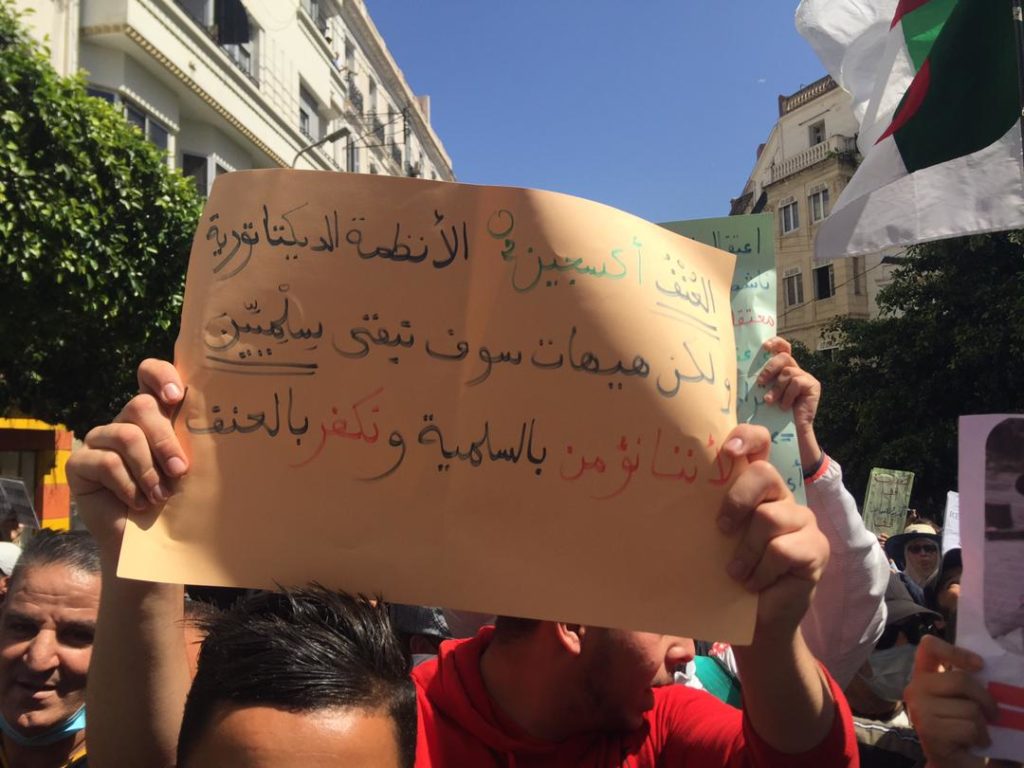 العُنْفُ أكسجين الأنظمة الديكتاتورية
ولكن هيهات سوف نبقى سِلْمِيّين
لأننا نؤمن بالسلمية ونكفر بالعنف
اعتقال
معتقل